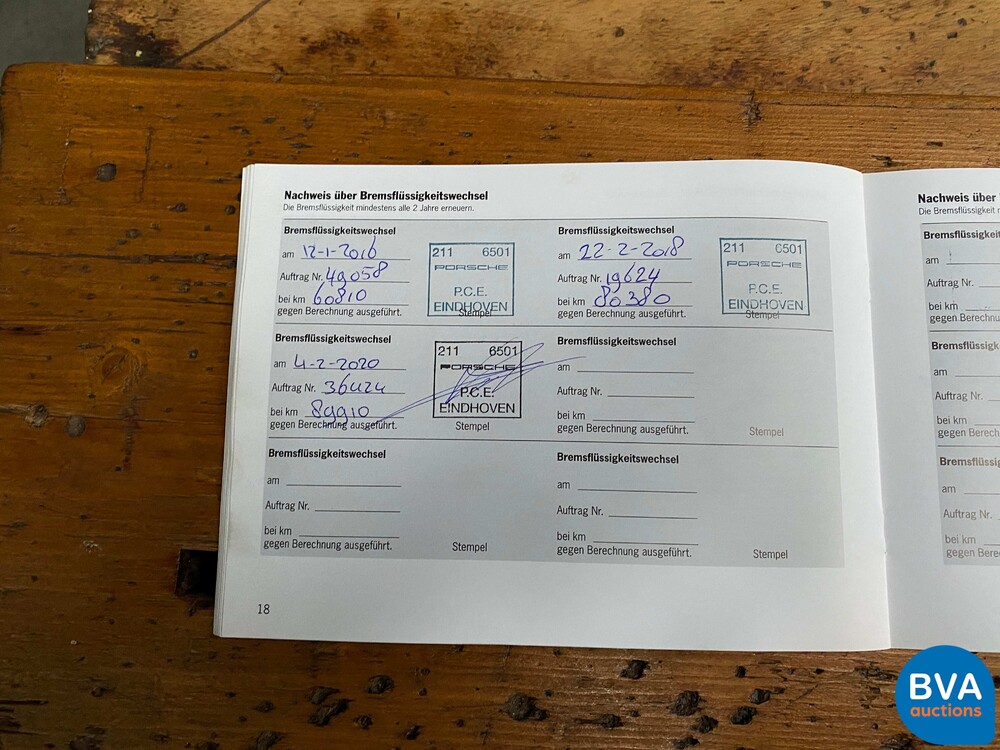 Nachweis über Bremsflüssigkeitswechsel
Die Bremsflüssigkeit mindestens alle 2 Jahre erneuern.
Bremsflüssigkeitswechsel
am 12-1-2016
Auftrag Nr. 49058
bei km 60810
gegen Berechnung ausgeführt.
211 6501
PORSCHE
P.C.E.
EINDHOVEN
Stempel
Bremsflüssigkeitswechsel
am 22-2-2018
Auftrag Nr. 19624
bei km 80380
gegen Berechnung ausgeführt.
211 6501
PORSCHE
P.C.E.
EINDHOVEN
Stempel
Bremsflüssigkeitswechsel
am 4-2-2020
Auftrag Nr. 36424
bei km 89910
gegen Berechnung ausgeführt.
211 6501
PORSCHE
P.C.E.
EINDHOVEN
Stempel
Bremsflüssigkeitswechsel
am
Auftrag Nr.
bei km
gegen Berechnung ausgeführt.
Stempel
Bremsflüssigkeitswechsel
am
Auftrag Nr.
bei km
gegen Berechnung ausgeführt.
Stempel
Bremsflüssigkeitswechsel
am
Auftrag Nr.
bei km
gegen Berechnung ausgeführt.
Stempel
18
Nachweis über
Die Bremsflüssigkeit
am
Auftrag Nr.
bei km
gegen
am
Auftrag Nr.
bei km
gegen
am
Auftrag Nr.
bei km
gegen
BVA
auctions